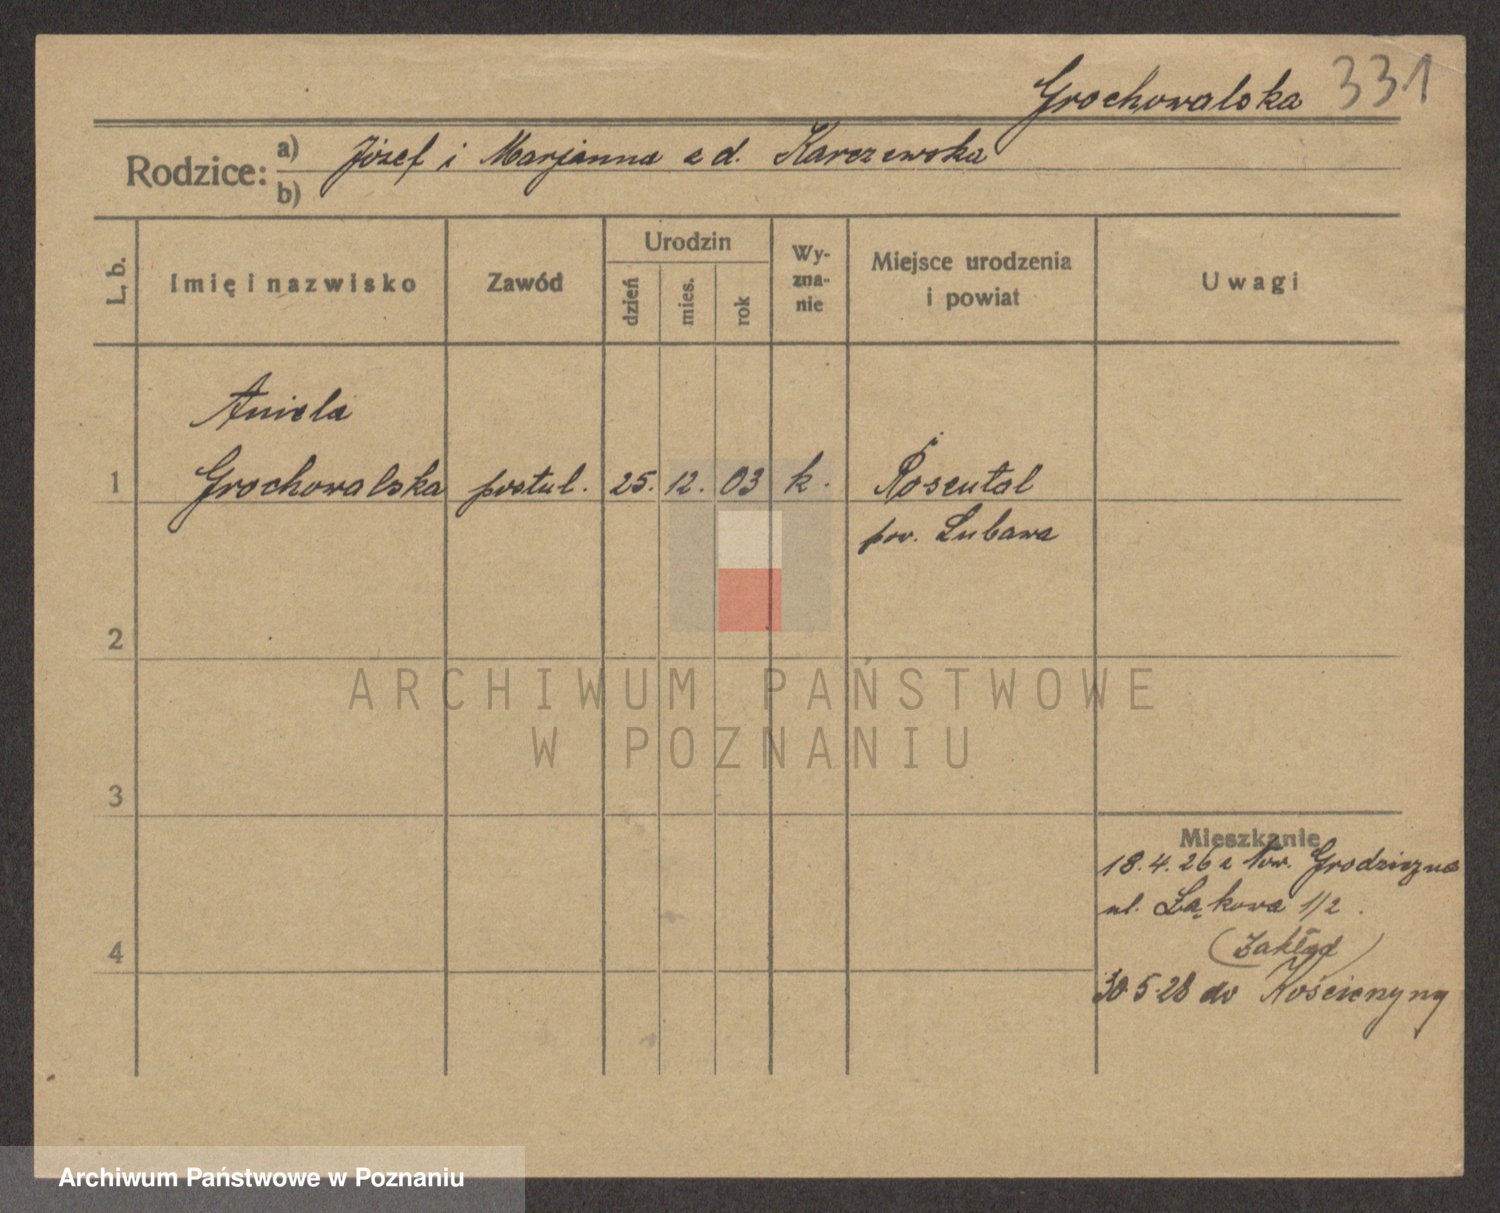 Grochowalska 331
Rodzice: a) Józef i Marjanna z d. Karczewska
b)
L. b. Imię i nazwisko Zawód Urodzin dzień mies. rok Wy-zna-nie Miejsce urodzenia i powiat Uwagi
Aniela
1 Grochowalska postul. 25. 12. 03 k. Rosental
pow. Lubawa
2
ARCHIWUM PAŃSTWOWE
W POZNANIU
3
Mieszkanie
18.4.26 z Now. Grodziczna
ul. Łąkowa 1/2.
(Zakład)
4
30.5.28 do Kościerzyny
Archiwum Państwowe w Poznaniu